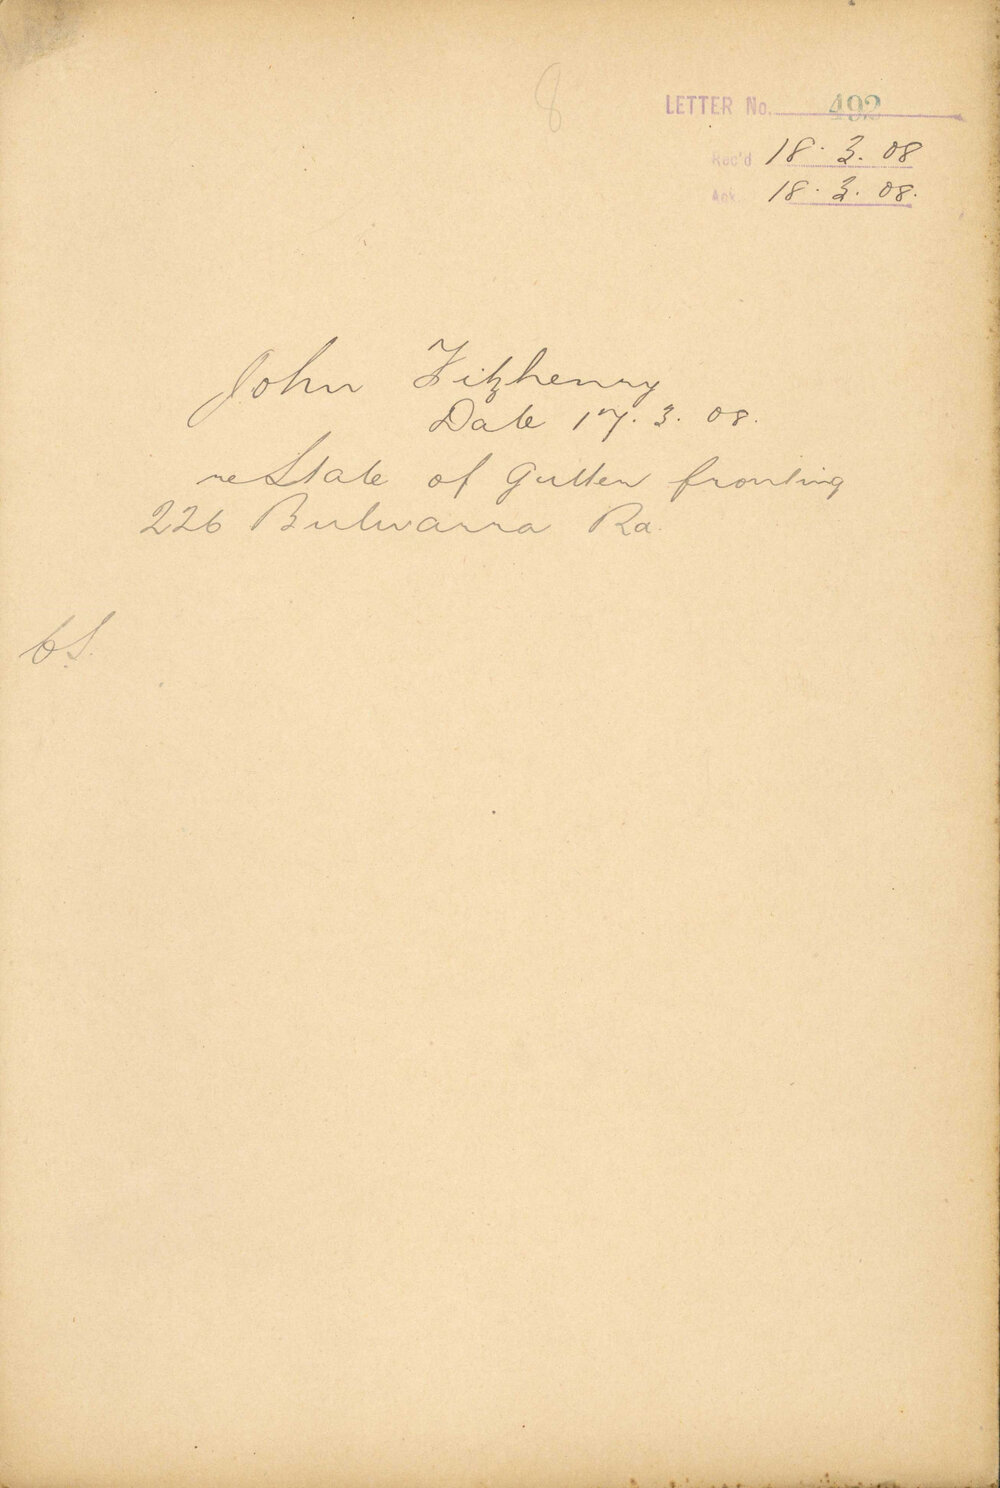 8
LETTER No. 492
Rec'd 18.3.08
Ack. 18.3.08.
John Fitzhenry
Date 17.3.08.
re State of Gutter fronting
226 Bulwarra Rd.